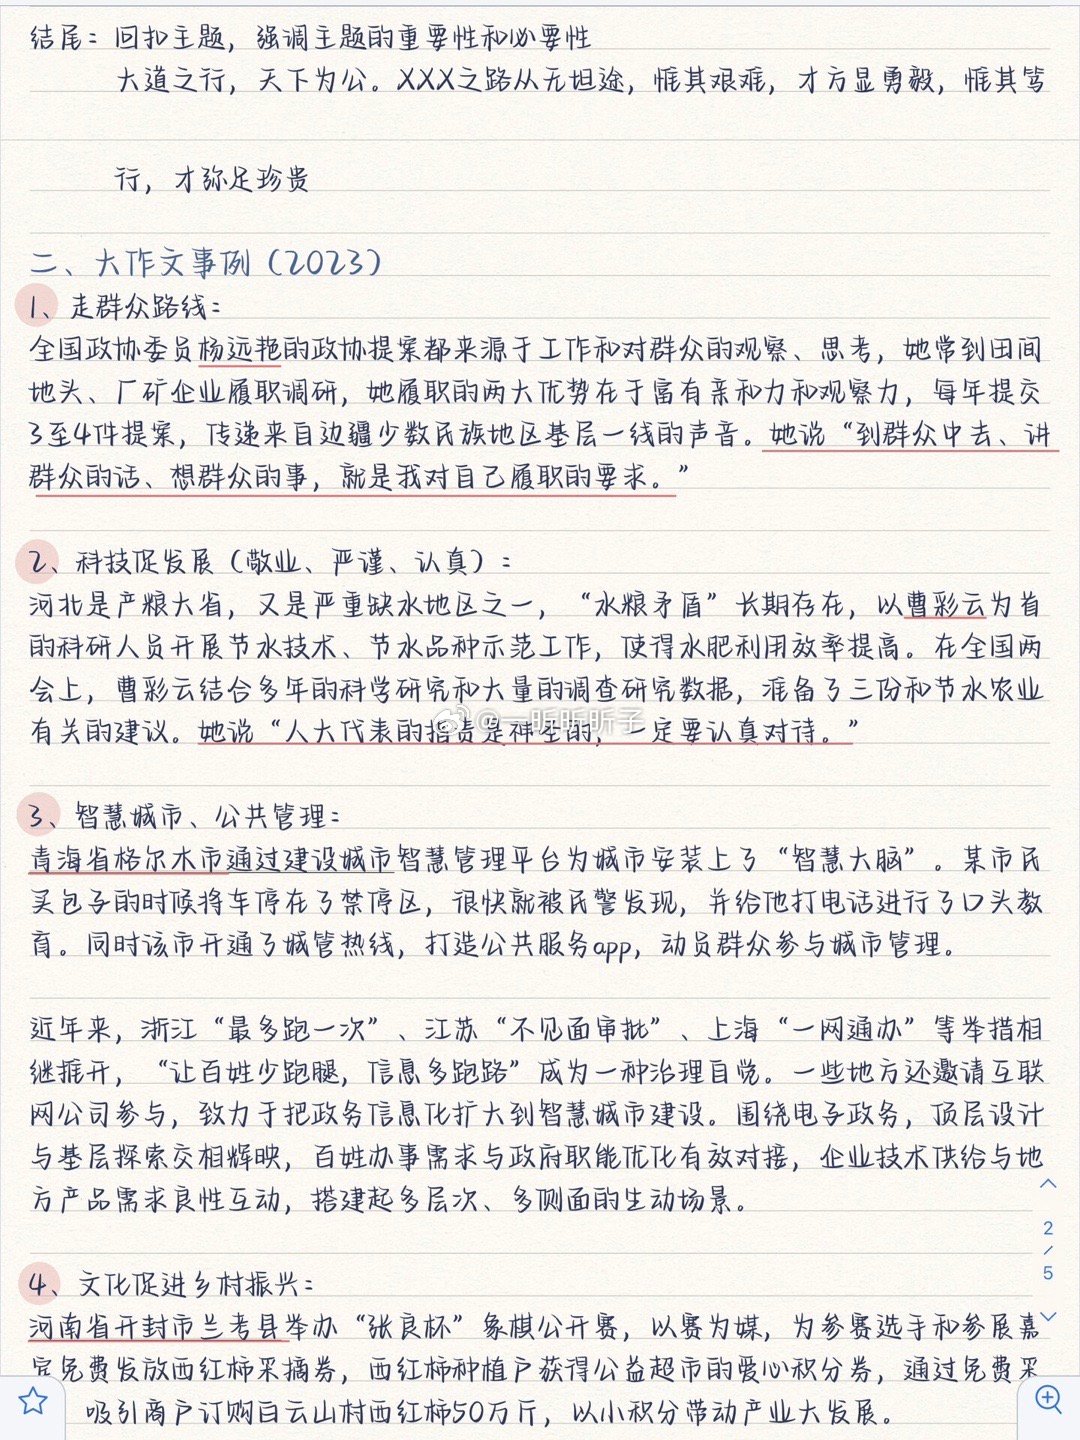 结尾：回扣主题，强调主题的重要性和必要性
大道之行，天下为公。XXX之路从无坦途，惟其艰难，才方显勇毅，惟其笃
行，才弥足珍贵
二、大作文事例（2023）
1、走群众路线：
全国政协委员杨远艳的政协提案都来源于工作和对群众的观察、思考，她常到田间
地头、厂矿企业履职调研，她履职的两大优势在于富有亲和力和观察力，每年提交
3至4件提案，传递来自边疆少数民族地区基层一线的声音。她说“到群众中去、讲
群众的话、想群众的事，就是我对自己履职的要求。”
2、科技促发展（敬业、严谨、认真）：
河北是产粮大省，又是严重缺水地区之一，“水粮矛盾”长期存在，以曹彩云为首
的科研人员开展节水技术、节水品种示范工作，使得水肥利用效率提高。在全国两
会上，曹彩云结合多年的科学研究和大量的调查研究数据，准备了三份和节水农业
有关的建议。她说“人大代表的指责是神圣的，一定要认真对待。”
@一昕昕昕子
3、智慧城市、公共管理：
青海省格尔木市通过建设城市智慧管理平台为城市安装上了“智慧大脑”。某市民
买包子的时候将车停在了禁停区，很快就被民警发现，并给他打电话进行了口头教
育。同时该市开通了城管热线，打造公共服务app，动员群众参与城市管理。
近年来，浙江“最多跑一次”、江苏“不见面审批”、上海“一网通办”等举措相
继推开，“让百姓少跑腿，信息多跑路”成为一种治理自觉。一些地方还邀请互联
网公司参与，致力于把政务信息化扩大到智慧城市建设。围绕电子政务，顶层设计
与基层探索交相辉映，百姓办事需求与政府职能优化有效对接，企业技术供给与地
方产品需求良性互动，搭建起多层次、多侧面的生动场景。
2
/
5
4、文化促进乡村振兴：
河南省开封市兰考县举办“张良杯”象棋公开赛，以赛为媒，为参赛选手和参展嘉
宾免费发放西红柿采摘券，西红柿种植户获得公益超市的爱心积分券，通过免费采
吸引商户订购白云山村西红柿50万斤，以小积分带动产业大发展。